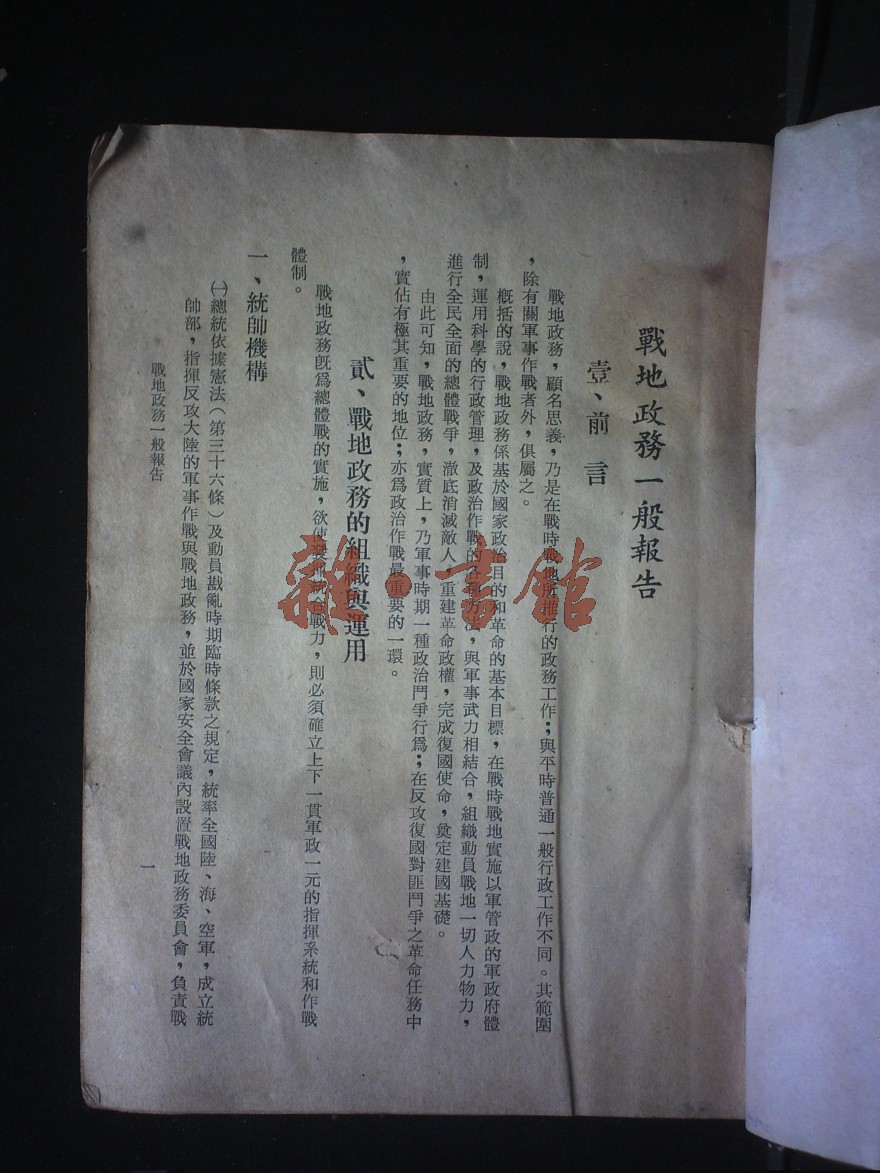 戰地政務一般報告
壹、前言
戰地政務，顧名思義，乃是在戰時戰地所推行的政務工作；與平時普通一般行政工作不同。其範圍
，除有關軍事作戰者外，俱屬之。
概括的說，戰地政務係基於國家政治目的和革命的基本目標，在戰時戰地實施以軍管政的軍政府體
制，運用科學的行政管理，及政治作戰的各種方法，與軍事武力相結合，組織動員戰地一切人力物力，
進行全民全面的總體戰爭，澈底消滅敵人，重建革命政權，完成復國使命，奠定建國基礎。
由此可知，戰地政務，實質上，乃軍事時期一種政治鬥爭行爲；在反攻復國對匪鬥爭之革命任務中
，實佔有極其重要的地位；亦爲政治作戰最重要的一環。
貳、戰地政務的組織與運用
戰地政務旣爲總體戰的實施，欲使發揮統合戰力，則必須確立上下一貫軍政一元的指揮系統和作戰
體制。
一、統帥機構
㈠總統依據憲法（第三十六條）及動員戡亂時期臨時條款之規定，統率全國陸、海、空軍，成立統
帥部，指揮反攻大陸的軍事作戰與戰地政務，並於國家安全會議內設置戰地政務委員會，負責戰
戰地政務一般報告
一
雜·書館